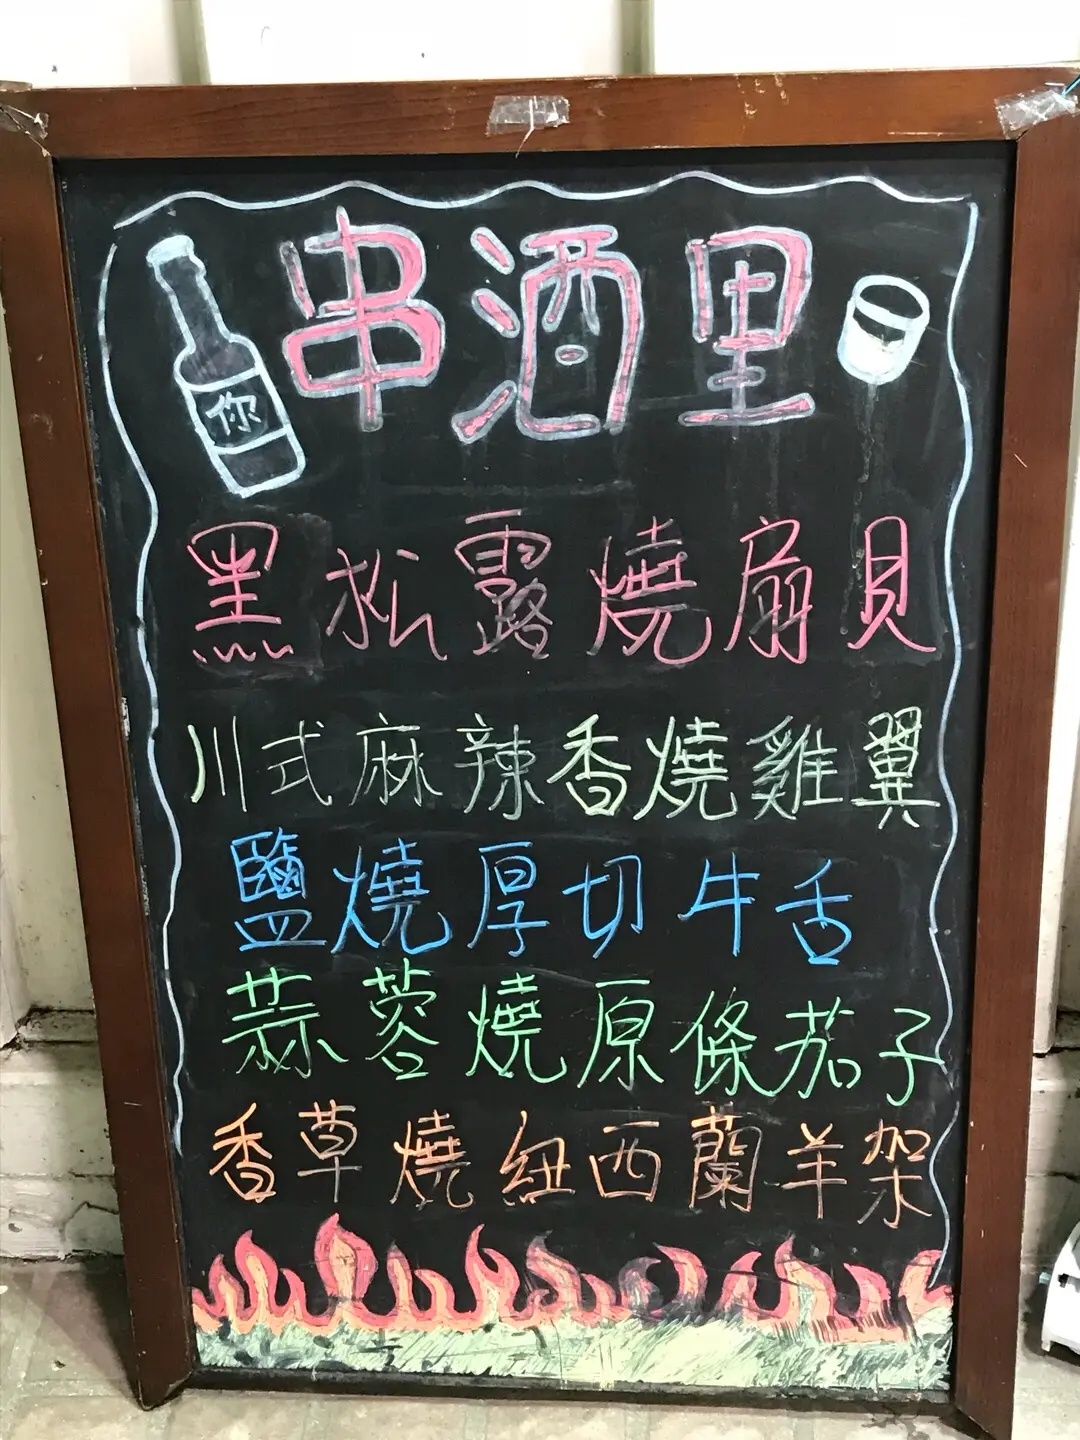 串酒里
你
黑松露燒扇貝
川式麻辣香燒雞翼
鹽燒厚切牛舌
蒜蓉燒原條茄子
香草燒紐西蘭羊架